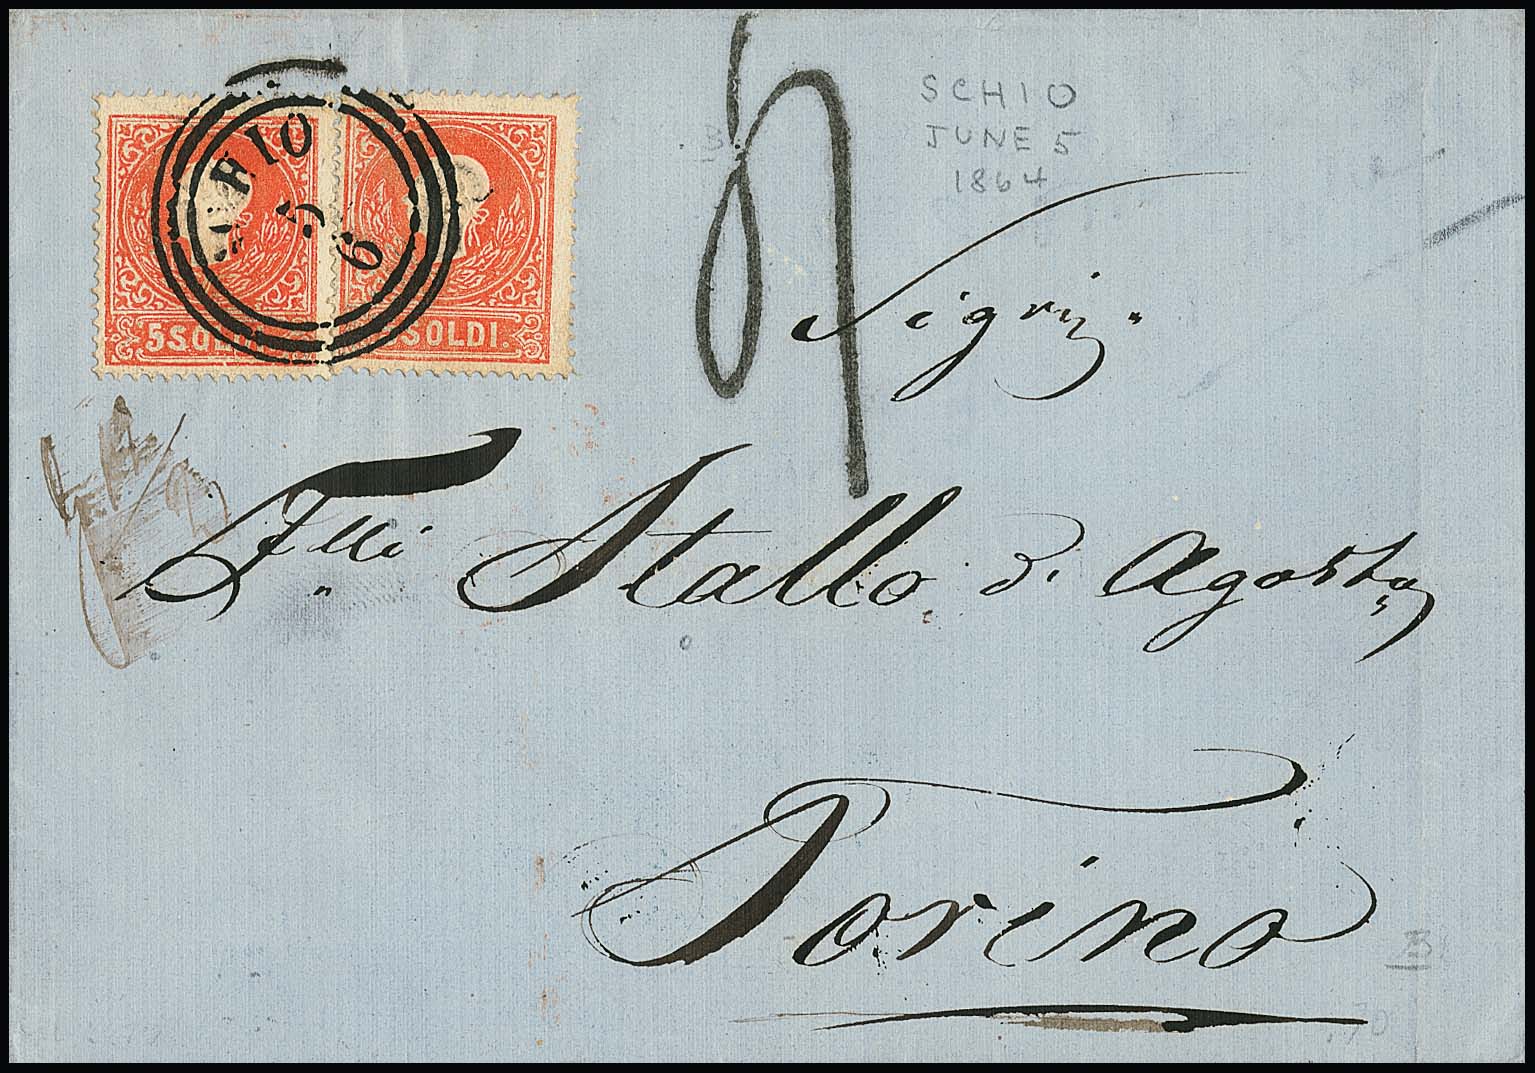 SCHIO
JUNE 5
1864
5
6
5 SOLDI
SOLDI.
Sigri
Flli Stallo d. Agosto
Torino
B